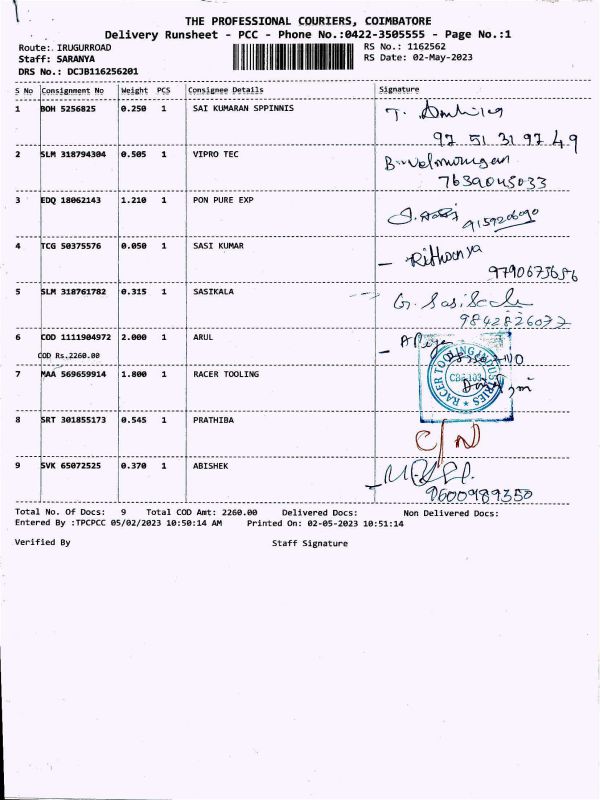 THE PROFESSIONAL COURIERS, COIMBATORE
Delivery Runsheet - PCC - Phone No.:0422-3505555 - Page No.:1
Route: IRUGURROAD
RS No.: 1162562
Staff: SARANYA
RS Date: 02-May-2023
DRS No.: DCJB116256201
S No Consignment No Weight PCS Consignee Details Signature
1 BOH 5256825 0.250 1 SAI KUMARAN SPPINNIS
97 51 31 97 49
2 SLM 318794304 0.505 1 VIPRO TEC B. Velmurugan
7639045033
3 EDQ 18062143 1.210 1 PON PURE EXP
9159206090
4 TCG 50375576 0.050 1 SASI KUMAR Rithanya
9790675656
5 SLM 318761782 0.315 1 SASIKALA G. Sasikala
9842826077
6 COD 1111904972 2.000 1 ARUL
COD Rs.2260.00
7 MAA 569659914 1.800 1 RACER TOOLING
RACER TOOLING INDUSTRIES
8 SRT 301855173 0.545 1 PRATHIBA C/N
9 SVK 65072525 0.370 1 ABISHEK
9600989350
Total No. Of Docs: 9 Total COD Amt: 2260.00 Delivered Docs: Non Delivered Docs:
Entered By :TPCPCC 05/02/2023 10:50:14 AM Printed On: 02-05-2023 10:51:14
Verified By Staff Signature